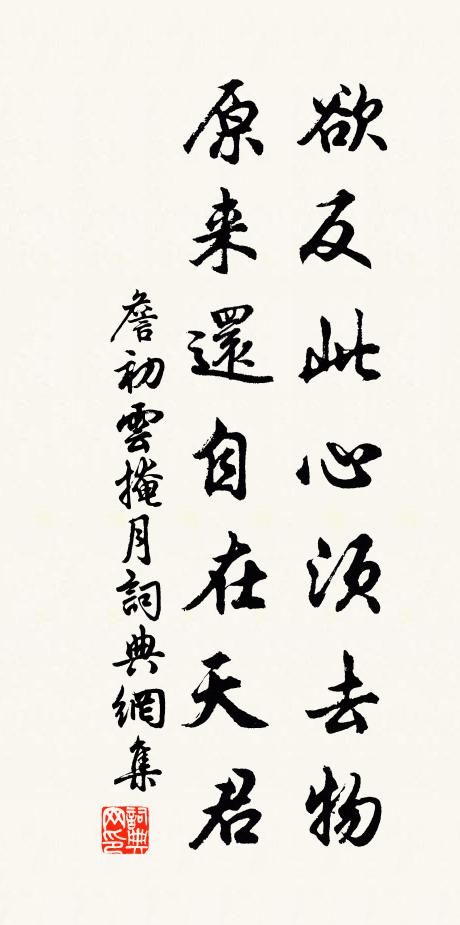 欲反此心須去物
原来還自在天君
詹初雲掩月詞典網集
詞典網印